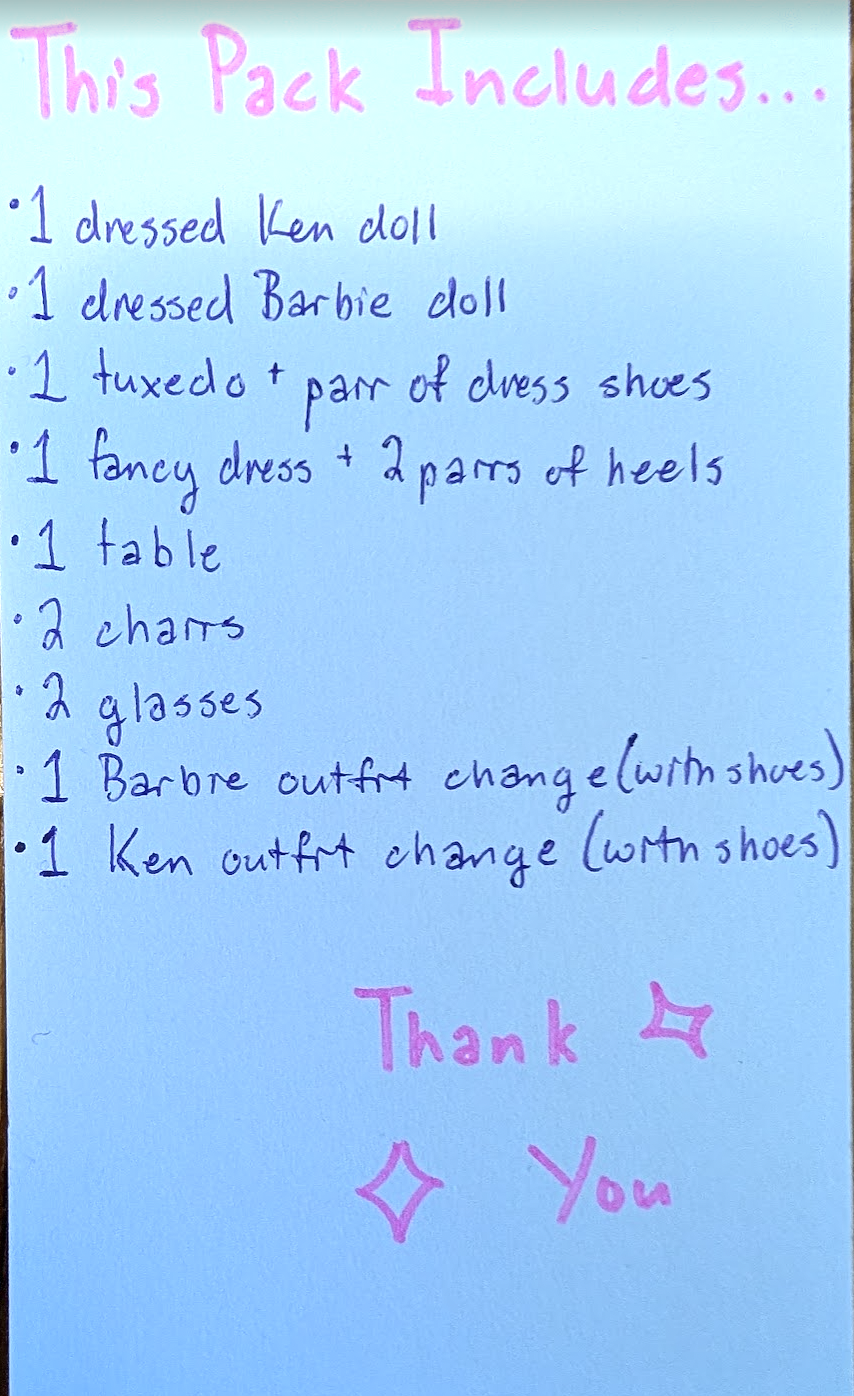 This Pack Includes...
•1 dressed Ken doll
•1 dressed Barbie doll
•1 tuxedo + pair of dress shoes
•1 fancy dress + 2 pairs of heels
•1 table
•2 chairs
•2 glasses
•1 Barbie outfit change (with shoes)
•1 Ken outfit change (with shoes)
Thank
You